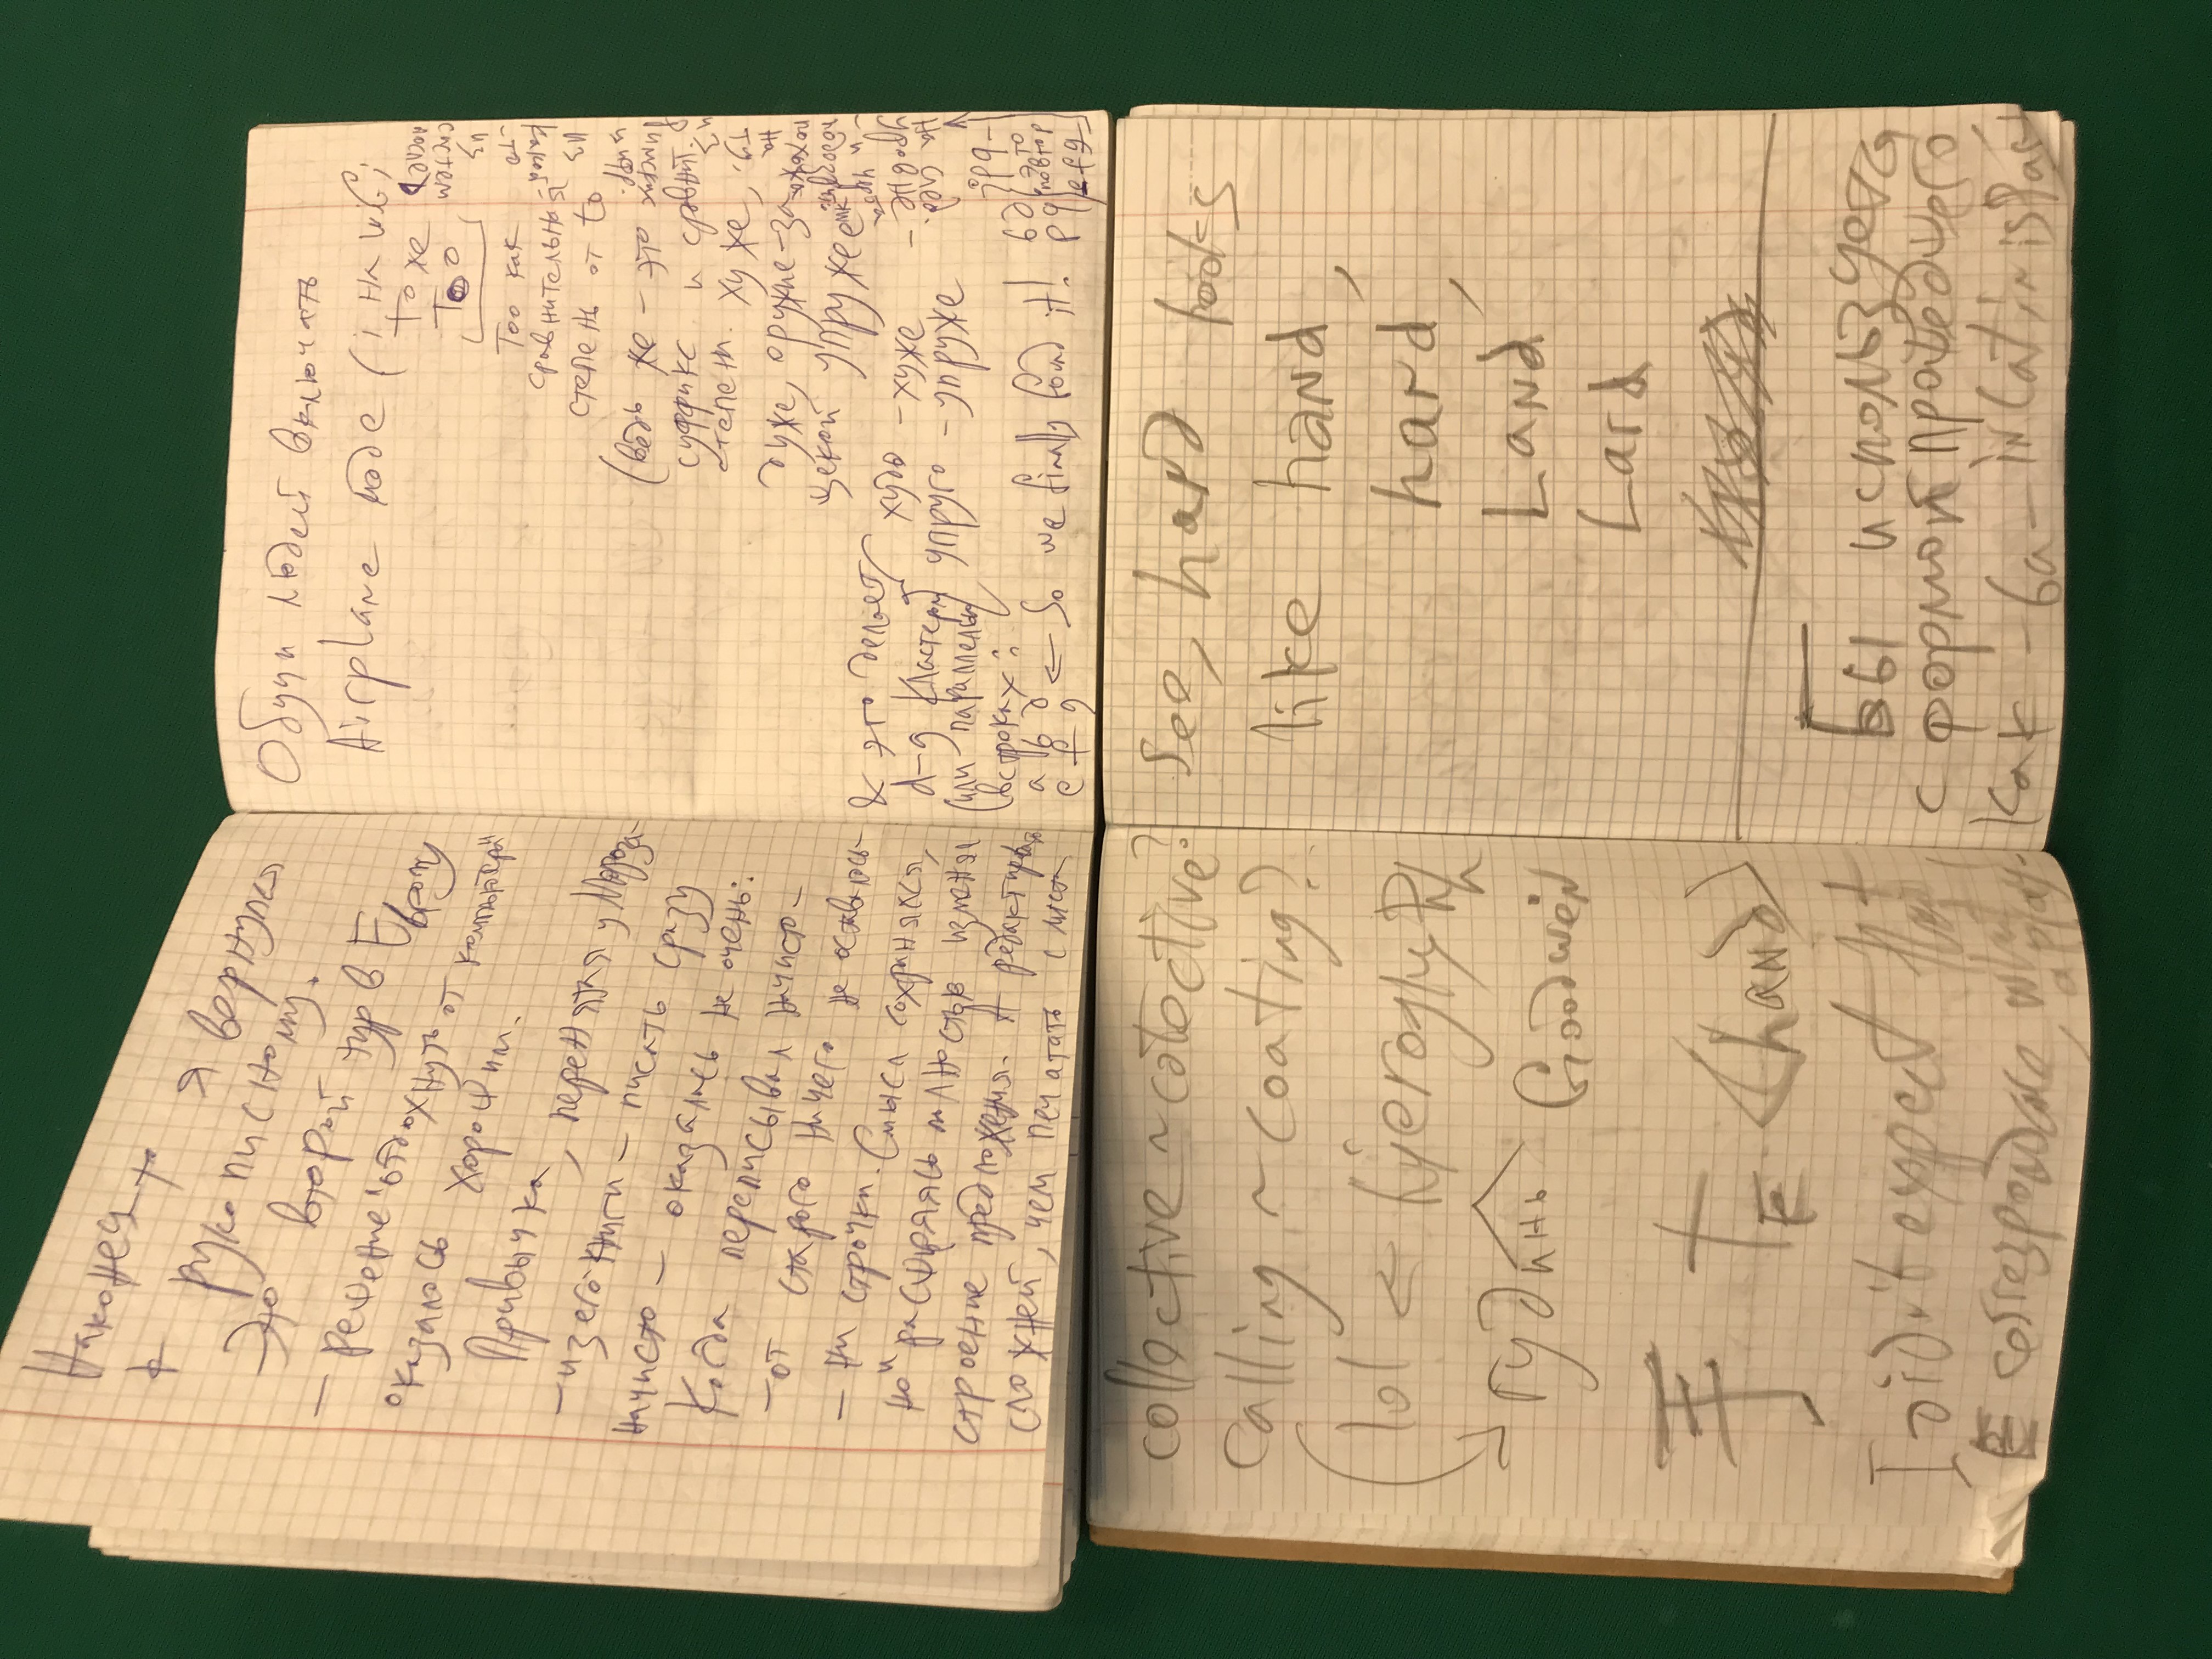 Наконец-то я вернулся
к рукописному.
Это второй тур в Европу
— решение "отдохнуть от компьютера"
оказалось хорошим.
Привычка, перенятая у Мороза
— из его книги — писать сразу
начисто — оказалась не очень:
Когда переписывал начисто —
— от старого ничего не оставалось
— ни строчки. Смысл сохранялся,
но расширяясь полностью изменял
строение предложения. А редактировать
сложней, чем печатать с листа
Обучи людей включать
Airplane mode (i на WiFi
то же
Too
Too как
сравнительна
степень от to
(ведь же — это
суффикс и сравнит.
степени. хуже,
дуже, оружие-за
щекой упружее
& это делает худо — хуже
d-g кластеры упруго — упруже
(или параллели
в строках:
a b d
e f g ← So we finally found it!
после
систем
из
-то
какой-
из
цифр.
римских
из
ту.
на
похожа
и
уровне —
на след.
collective ~ catective?
calling ~ coating?
lol ← hjeroglyph
гудинь Goodwin
手 t E <hand>
I didn't expect that
E correspondance, what
a play-
See, hard looks
like hand,
hard,
Land
Lard
Бы используется
с формой прошедшего,
как -ba- in Latin is past